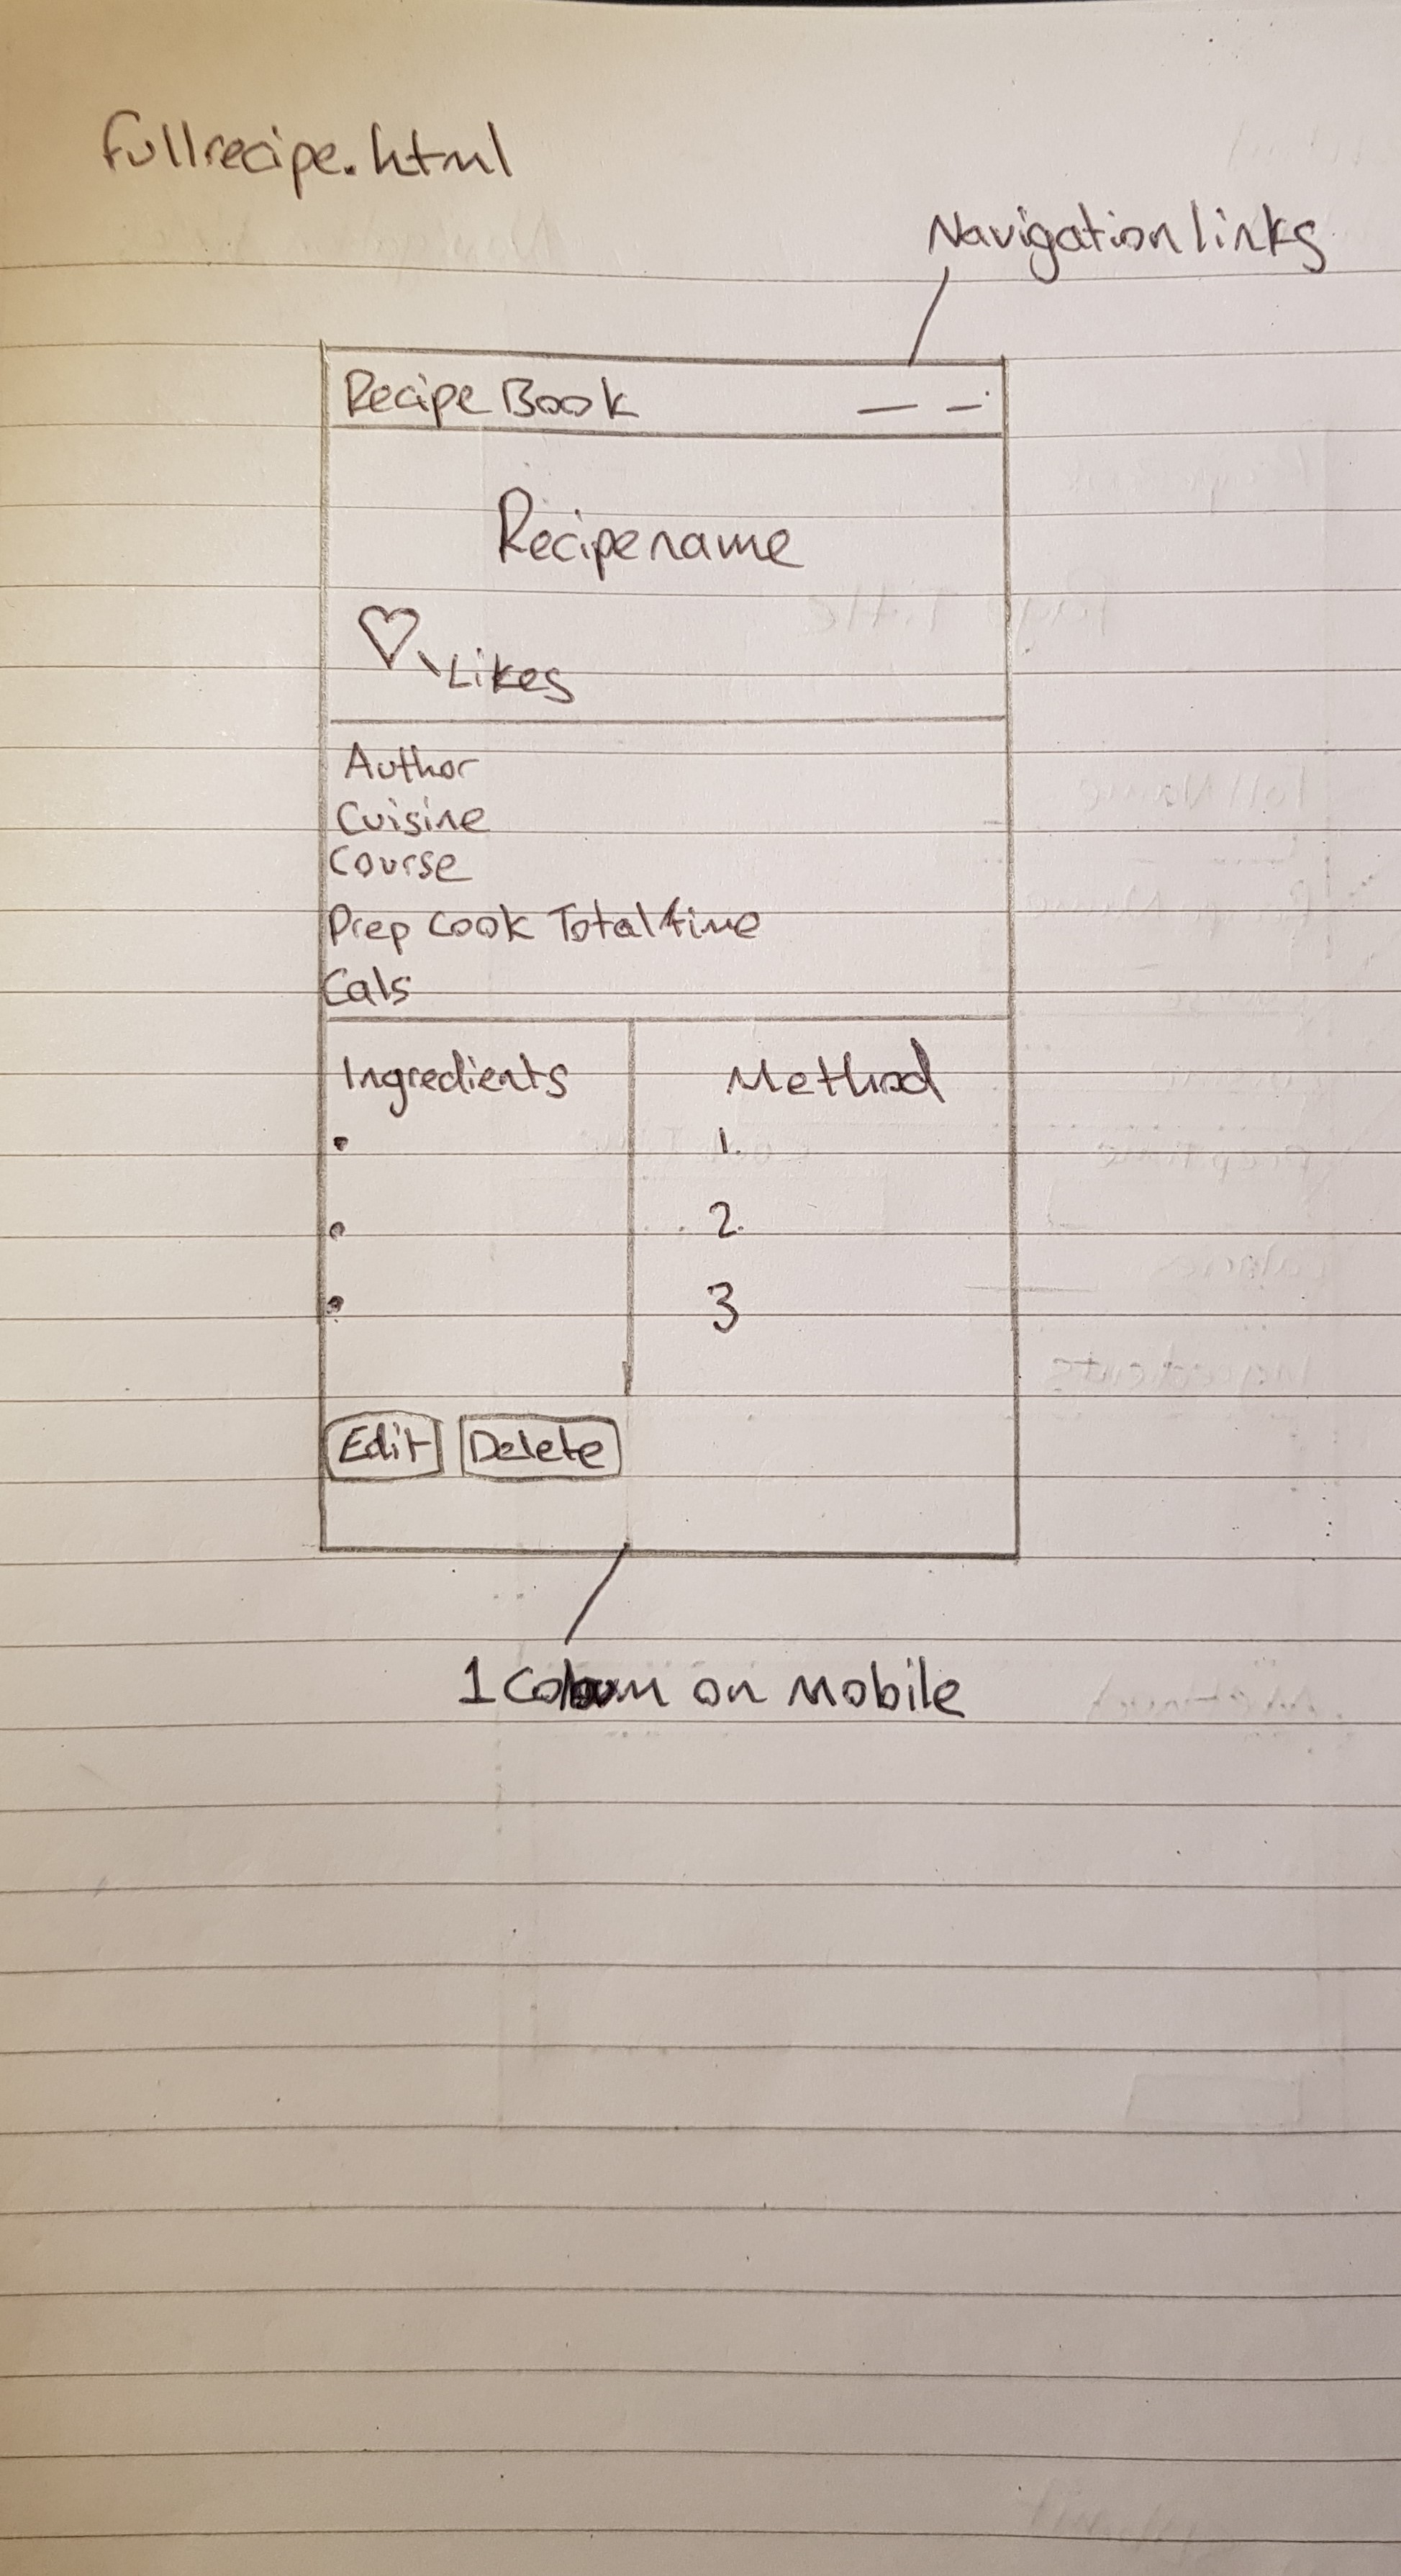 fullrecipe.html
Navigation links
Recipe Book
Recipe name
Likes
Author
Cuisine
Course
Prep Cook Total time
Cals
Ingredients Method
1.
2.
3
Edit Delete
1 on mobile